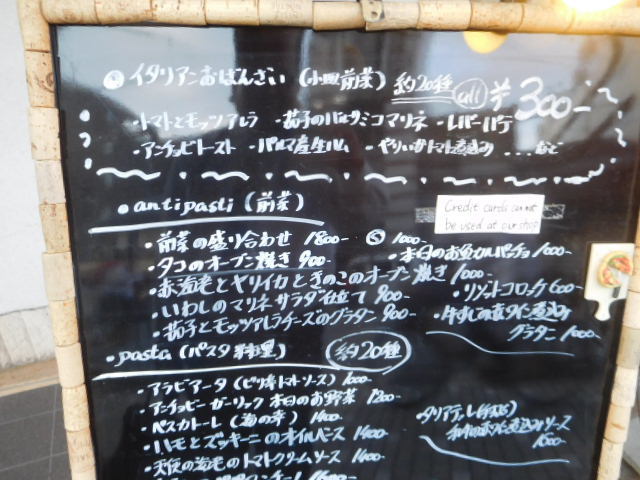 イタリアンおばんざい (小皿前菜) 約20種 all ¥300-
・トマトとモッツアレラ ・茄子のバルサミコマリネ ・レバーパテ
・アンチョビトースト ・パルマ産生ハム ・やりいかトマト煮込み ....など
●antipasti (前菜)
Credit cards can not
be used at our shop
・前菜の盛り合わせ 1800- Ⓢ 1000-
・本日のお魚カルパッチョ 1000-
・タコのオーブン焼き 900-
・赤海老とヤリイカときのこのオーブン焼き 1000-
・リゾットコロッケ 600-
・いわしのマリネサラダ仕立て 900-
・茄子とモッツアレラチーズのグラタン 900-
グラタン 1000-
・pasta (パスタ料理) 約20種
・アラビアータ (ピリ辛トマトソース) 1000-
・アンチョビーガーリック 本日のお野菜 1200-
・ペスカトーレ (海の幸) 1400-
・ハモとズッキーニのオイルベース 1400-
・天使の海老のトマトクリームソース 1400-
・タリアテーレ
煮込みソース
1500-